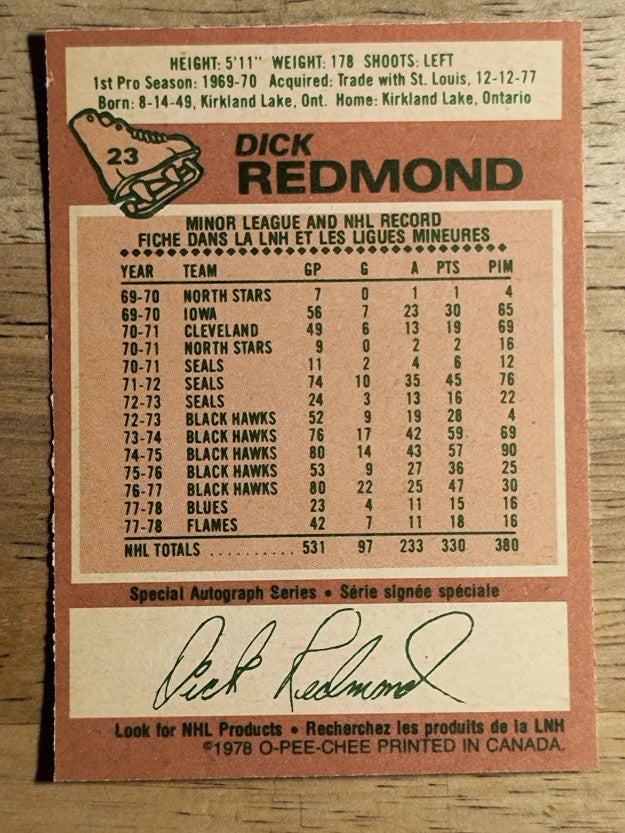 HEIGHT: 5'11" WEIGHT: 178 SHOOTS: LEFT
1st Pro Season: 1969-70 Acquired: Trade with St. Louis, 12-12-77
Born: 8-14-49, Kirkland Lake, Ont. Home: Kirkland Lake, Ontario
23
DICK
REDMOND
MINOR LEAGUE AND NHL RECORD
FICHE DANS LA LNH ET LES LIGUES MINEURES
YEAR TEAM GP G A PTS PIM
69-70 NORTH STARS 7 0 1 1 4
69-70 IOWA 56 7 23 30 65
70-71 CLEVELAND 49 6 13 19 69
70-71 NORTH STARS 9 0 2 2 16
70-71 SEALS 11 2 4 6 12
71-72 SEALS 74 10 35 45 76
72-73 SEALS 24 3 13 16 22
72-73 BLACK HAWKS 52 9 19 28 4
73-74 BLACK HAWKS 76 17 42 59 69
74-75 BLACK HAWKS 80 14 43 57 90
75-76 BLACK HAWKS 53 9 27 36 25
76-77 BLACK HAWKS 80 22 25 47 30
77-78 BLUES 23 4 11 15 16
77-78 FLAMES 42 7 11 18 16
NHL TOTALS .......... 531 97 233 330 380
Special Autograph Series • Série signée spéciale
Dick Redmond
Look for NHL Products • Recherchez les produits de la LNH
©1978 O-PEE-CHEE PRINTED IN CANADA.